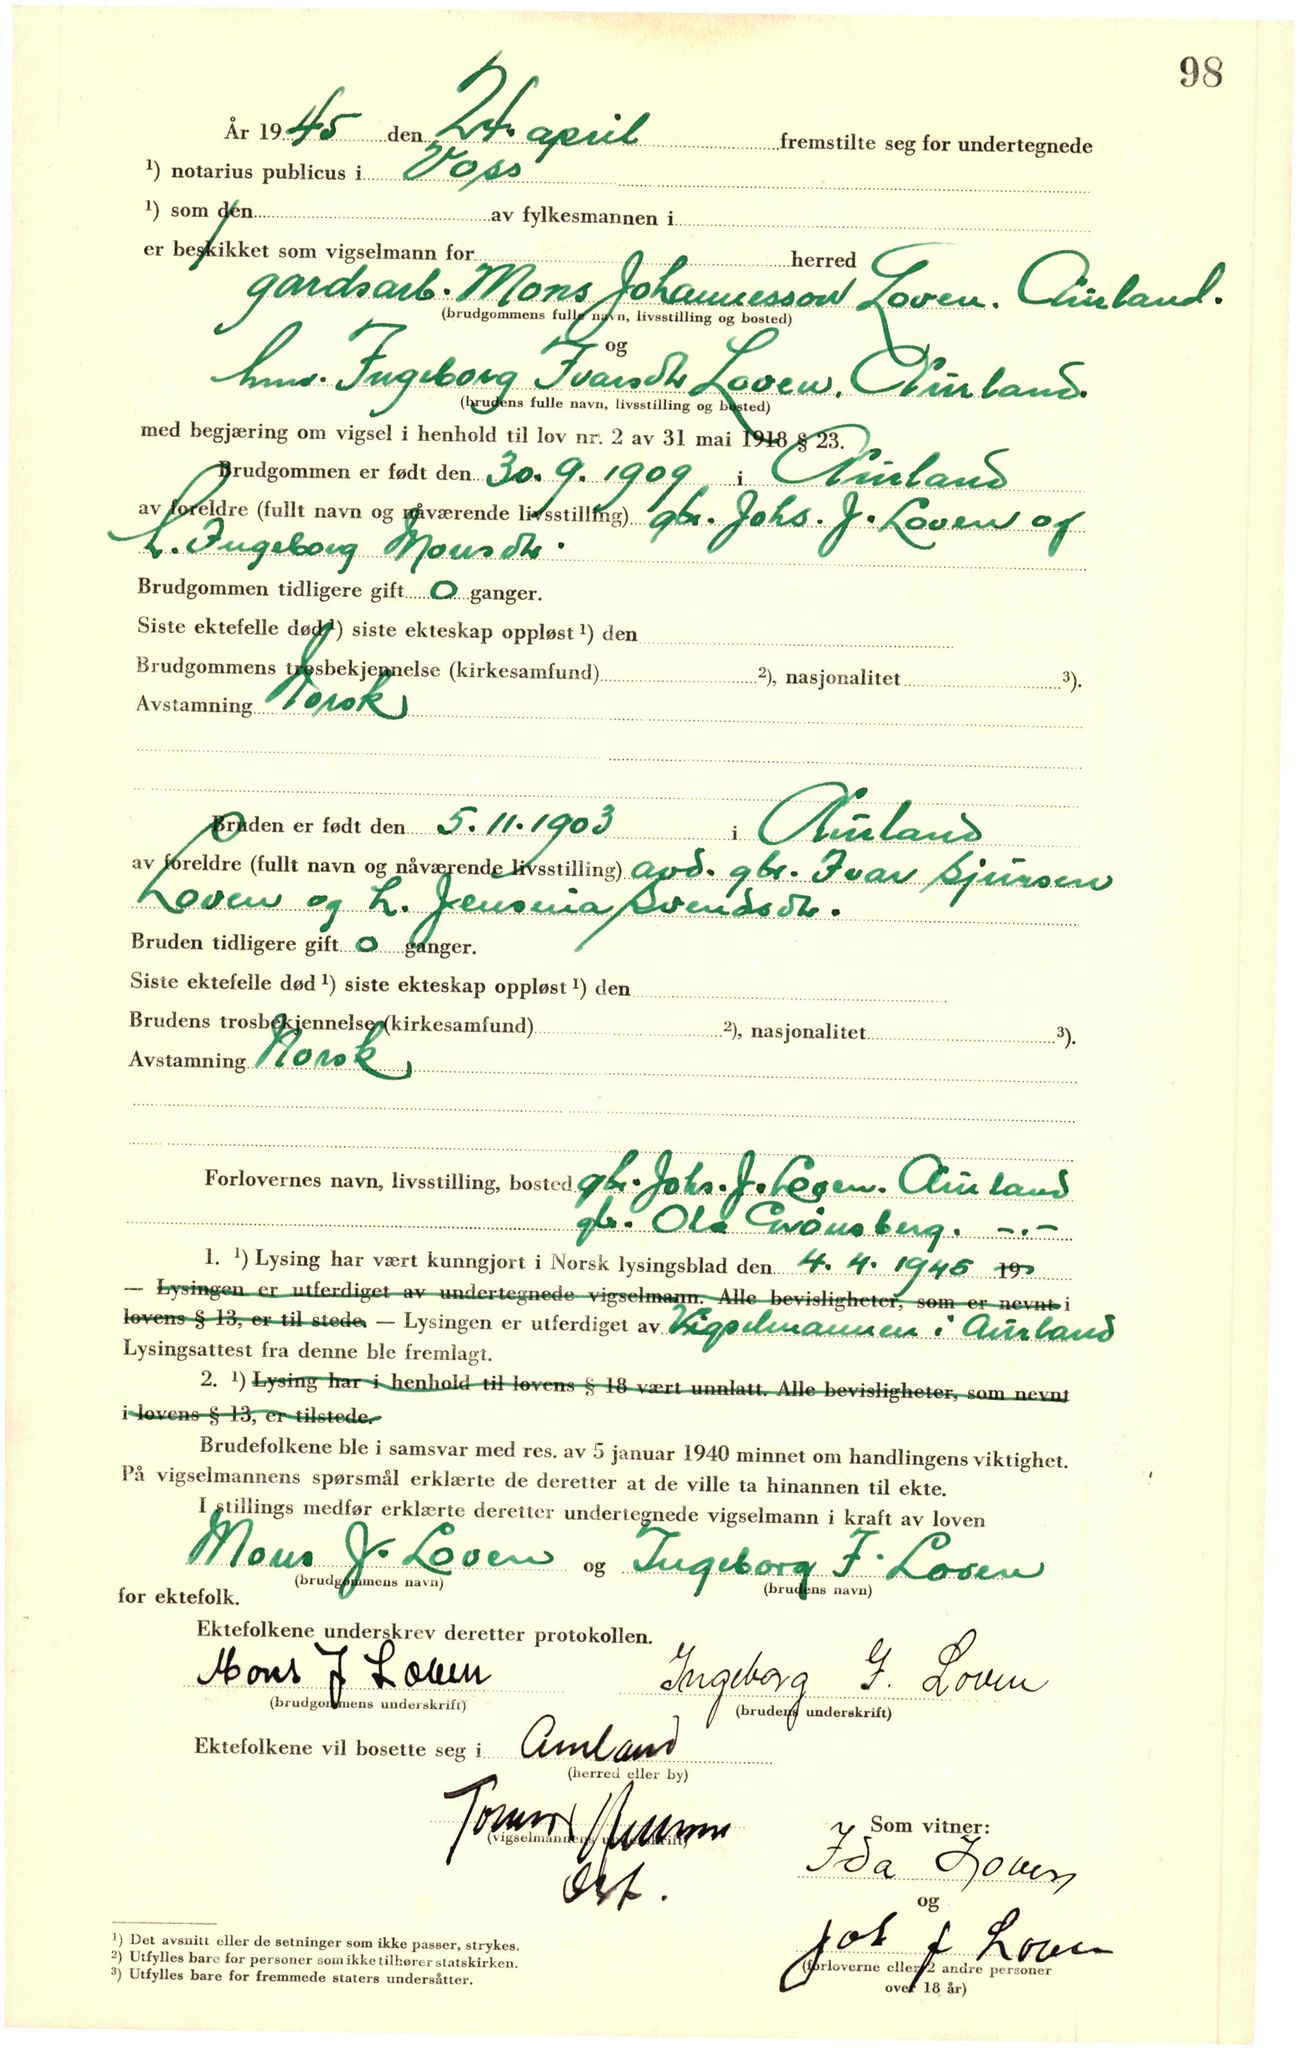 98
År 1945 den 24. april fremstilte seg for undertegnede
¹) notarius publicus i Voss
¹) som den av fylkesmannen i
er beskikket som vigselmann for herred
gardsarb. Mons Johannesson Loven. Aurland.
(brudgommens fulle navn, livsstilling og bosted)
og
hmv. Ingeborg Ivarsdtr Loven, Aurland.
(brudens fulle navn, livsstilling og bosted)
med begjæring om vigsel i henhold til lov nr. 2 av 31 mai 1918 § 23.
Brudgommen er født den 30. 9. 1909 i Aurland
av foreldre (fullt navn og nåværende livsstilling) gbr. Johs. J. Loven og
h. Ingeborg Monsdtr.
Brudgommen tidligere gift 0 ganger.
Siste ektefelle død ¹) siste ekteskap oppløst ¹) den
Brudgommens trosbekjennelse (kirkesamfund) ²), nasjonalitet ³).
Avstamning Norsk
Bruden er født den 5. 11. 1903 i Aurland
av foreldre (fullt navn og nåværende livsstilling) avd. gbr. Ivar Sjursen
Loven og h. Jensina Svendsdtr.
Bruden tidligere gift 0 ganger.
Siste ektefelle død ¹) siste ekteskap oppløst ¹) den
Brudens trosbekjennelse (kirkesamfund) ²), nasjonalitet ³).
Avstamning Norsk
Forlovernes navn, livsstilling, bosted gbr. Johs. J. Loven. Aurland
gbr. Ola Grønsberg. -.-
1. ¹) Lysing har vært kunngjort i Norsk lysingsblad den 4. 4. 1945 19
— Lysingen er utferdiget av undertegnede vigselmann. Alle bevisligheter, som er nevnt i
lovens § 13, er til stede. — Lysingen er utferdiget av Vigselmannen i Aurland
Lysingsattest fra denne ble fremlagt.
2. ¹) Lysing har i henhold til lovens § 18 vært unnlatt. Alle bevisligheter, som nevnt
i lovens § 13, er tilstede.
Brudefolkene ble i samsvar med res. av 5 januar 1940 minnet om handlingens viktighet.
På vigselmannens spørsmål erklærte de deretter at de ville ta hinannen til ekte.
I stillings medfør erklærte deretter undertegnede vigselmann i kraft av loven
Mons J. Loven og Ingeborg I. Loven
(brudgommens navn) (brudens navn)
for ektefolk.
Ektefolkene underskrev deretter protokollen.
Mons J Loven Ingeborg I. Loven
(brudgommens underskrift) (brudens underskrift)
Ektefolkene vil bosette seg i Aurland
(herred eller by)
(vigselmannens underskrift)
Som vitner:
Ida Loven
og
Joh J Loven
(forloverne eller 2 andre personer
over 18 år)
¹) Det avsnitt eller de setninger som ikke passer, strykes.
²) Utfylles bare for personer som ikke tilhører statskirken.
³) Utfylles bare for fremmede staters undersåtter.